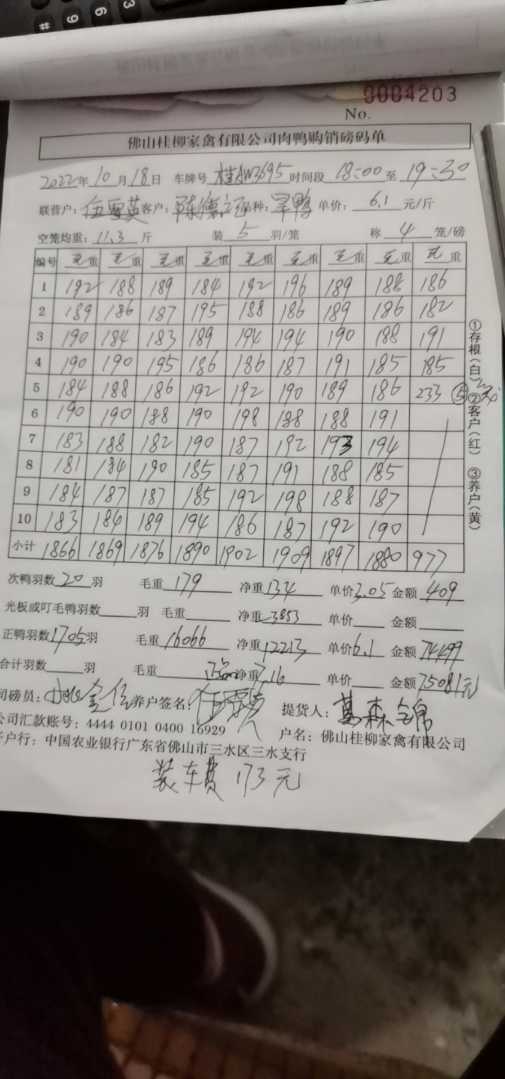 0004203
No.
佛山桂柳家禽有限公司肉鸭购销磅码单
2022年10月18日 车牌号 时间段 18:00 至 19:30
联营户: 客户: 品种: 单价: 6.1 元/斤
空笼均重: 11.3 斤 装 5 羽/笼 称 4 笼/磅
编号 毛重 毛重 毛重 毛重 毛重 毛重 毛重 毛重 毛重
1 192 188 189 184 192 196 189 188 186
2 189 186 187 195 188 186 189 186 182
3 190 184 183 189 194 194 190 188 191
4 190 190 195 186 186 187 191 185 185
5 184 188 186 192 192 190 189 186 233
6 190 190 188 190 198 188 188 191
7 183 188 182 190 187 192 193 194
8 181 184 190 185 187 191 188 185
9 184 187 187 185 192 198 188 187
10 183 186 189 194 186 187 192 190
小计 1866 1869 1876 1890 1902 1909 1897 1880 977
①存根(白) ②客户(红) ③养户(黄)
次鸭羽数 20 羽 毛重 179 净重 134 单价 3.05 金额 409
光板或叮毛鸭羽数 羽 毛重 净重 3853 单价 金额
正鸭羽数 1705 羽 毛重 16066 净重 12213 单价 6.1 金额 74499
合计羽数 羽 毛重 净重 7.16 单价 金额 75081元
司磅员: 养户签名: 提货人:
公司汇款账号: 4444 0101 0400 16929 户名: 佛山桂柳家禽有限公司
户行: 中国农业银行广东省佛山市三水区三水支行
装车费 173元